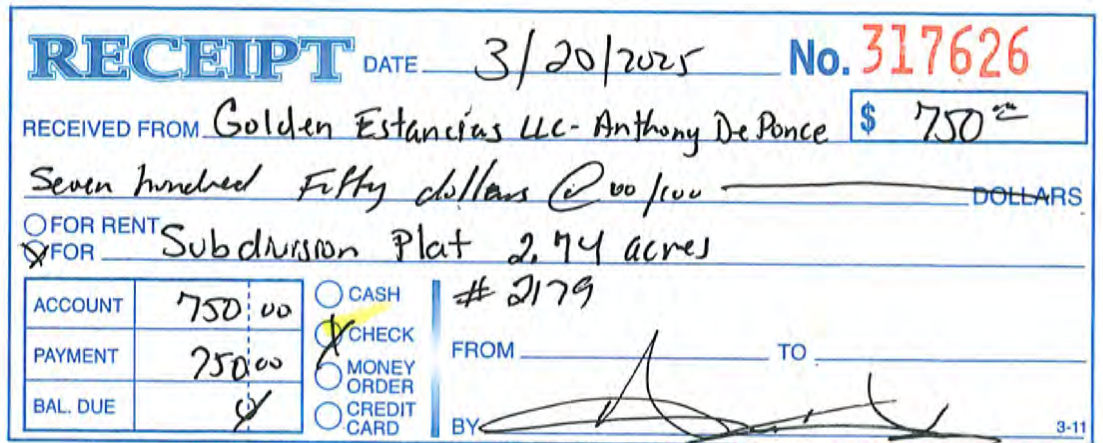 RECEIPT DATE 3/20/2025 No. 317626
RECEIVED FROM Golden Estancias LLC - Anthony De Ponce $ 750 00
Seven hundred Fifty dollars @ 00/100 DOLLARS
FOR RENT
FOR Subdivision Plat 2.74 acres
ACCOUNT 750 00
PAYMENT 750 00
BAL. DUE 0
CASH
CHECK
MONEY ORDER
CREDIT CARD
# 2179
FROM TO
BY
3-11